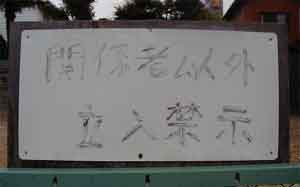 関係者以外
立入禁示